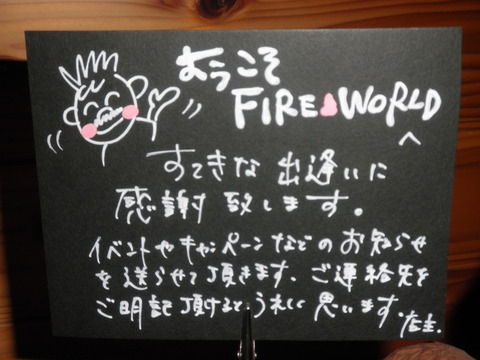 ようこそ
FIRE WORLD
へ
すてきな出逢いに
感謝致します。
イベントやキャンペーンなどのお知らせ
を送らせて頂きます、ご連絡先を
ご明記頂けるとうれしく思います。
店主.